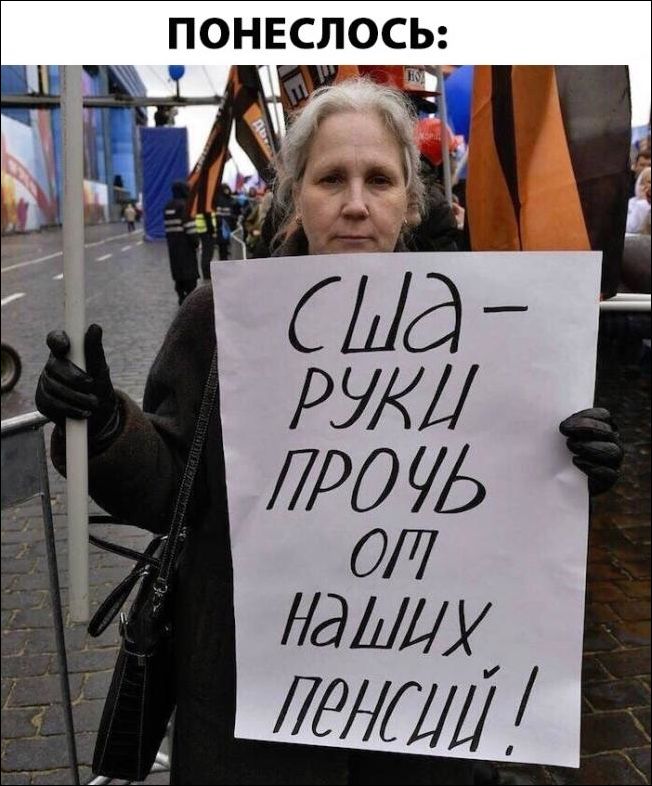 ПОНЕСЛОСЬ:
США -
РУКИ
ПРОЧЬ
от
наших
пенсий!